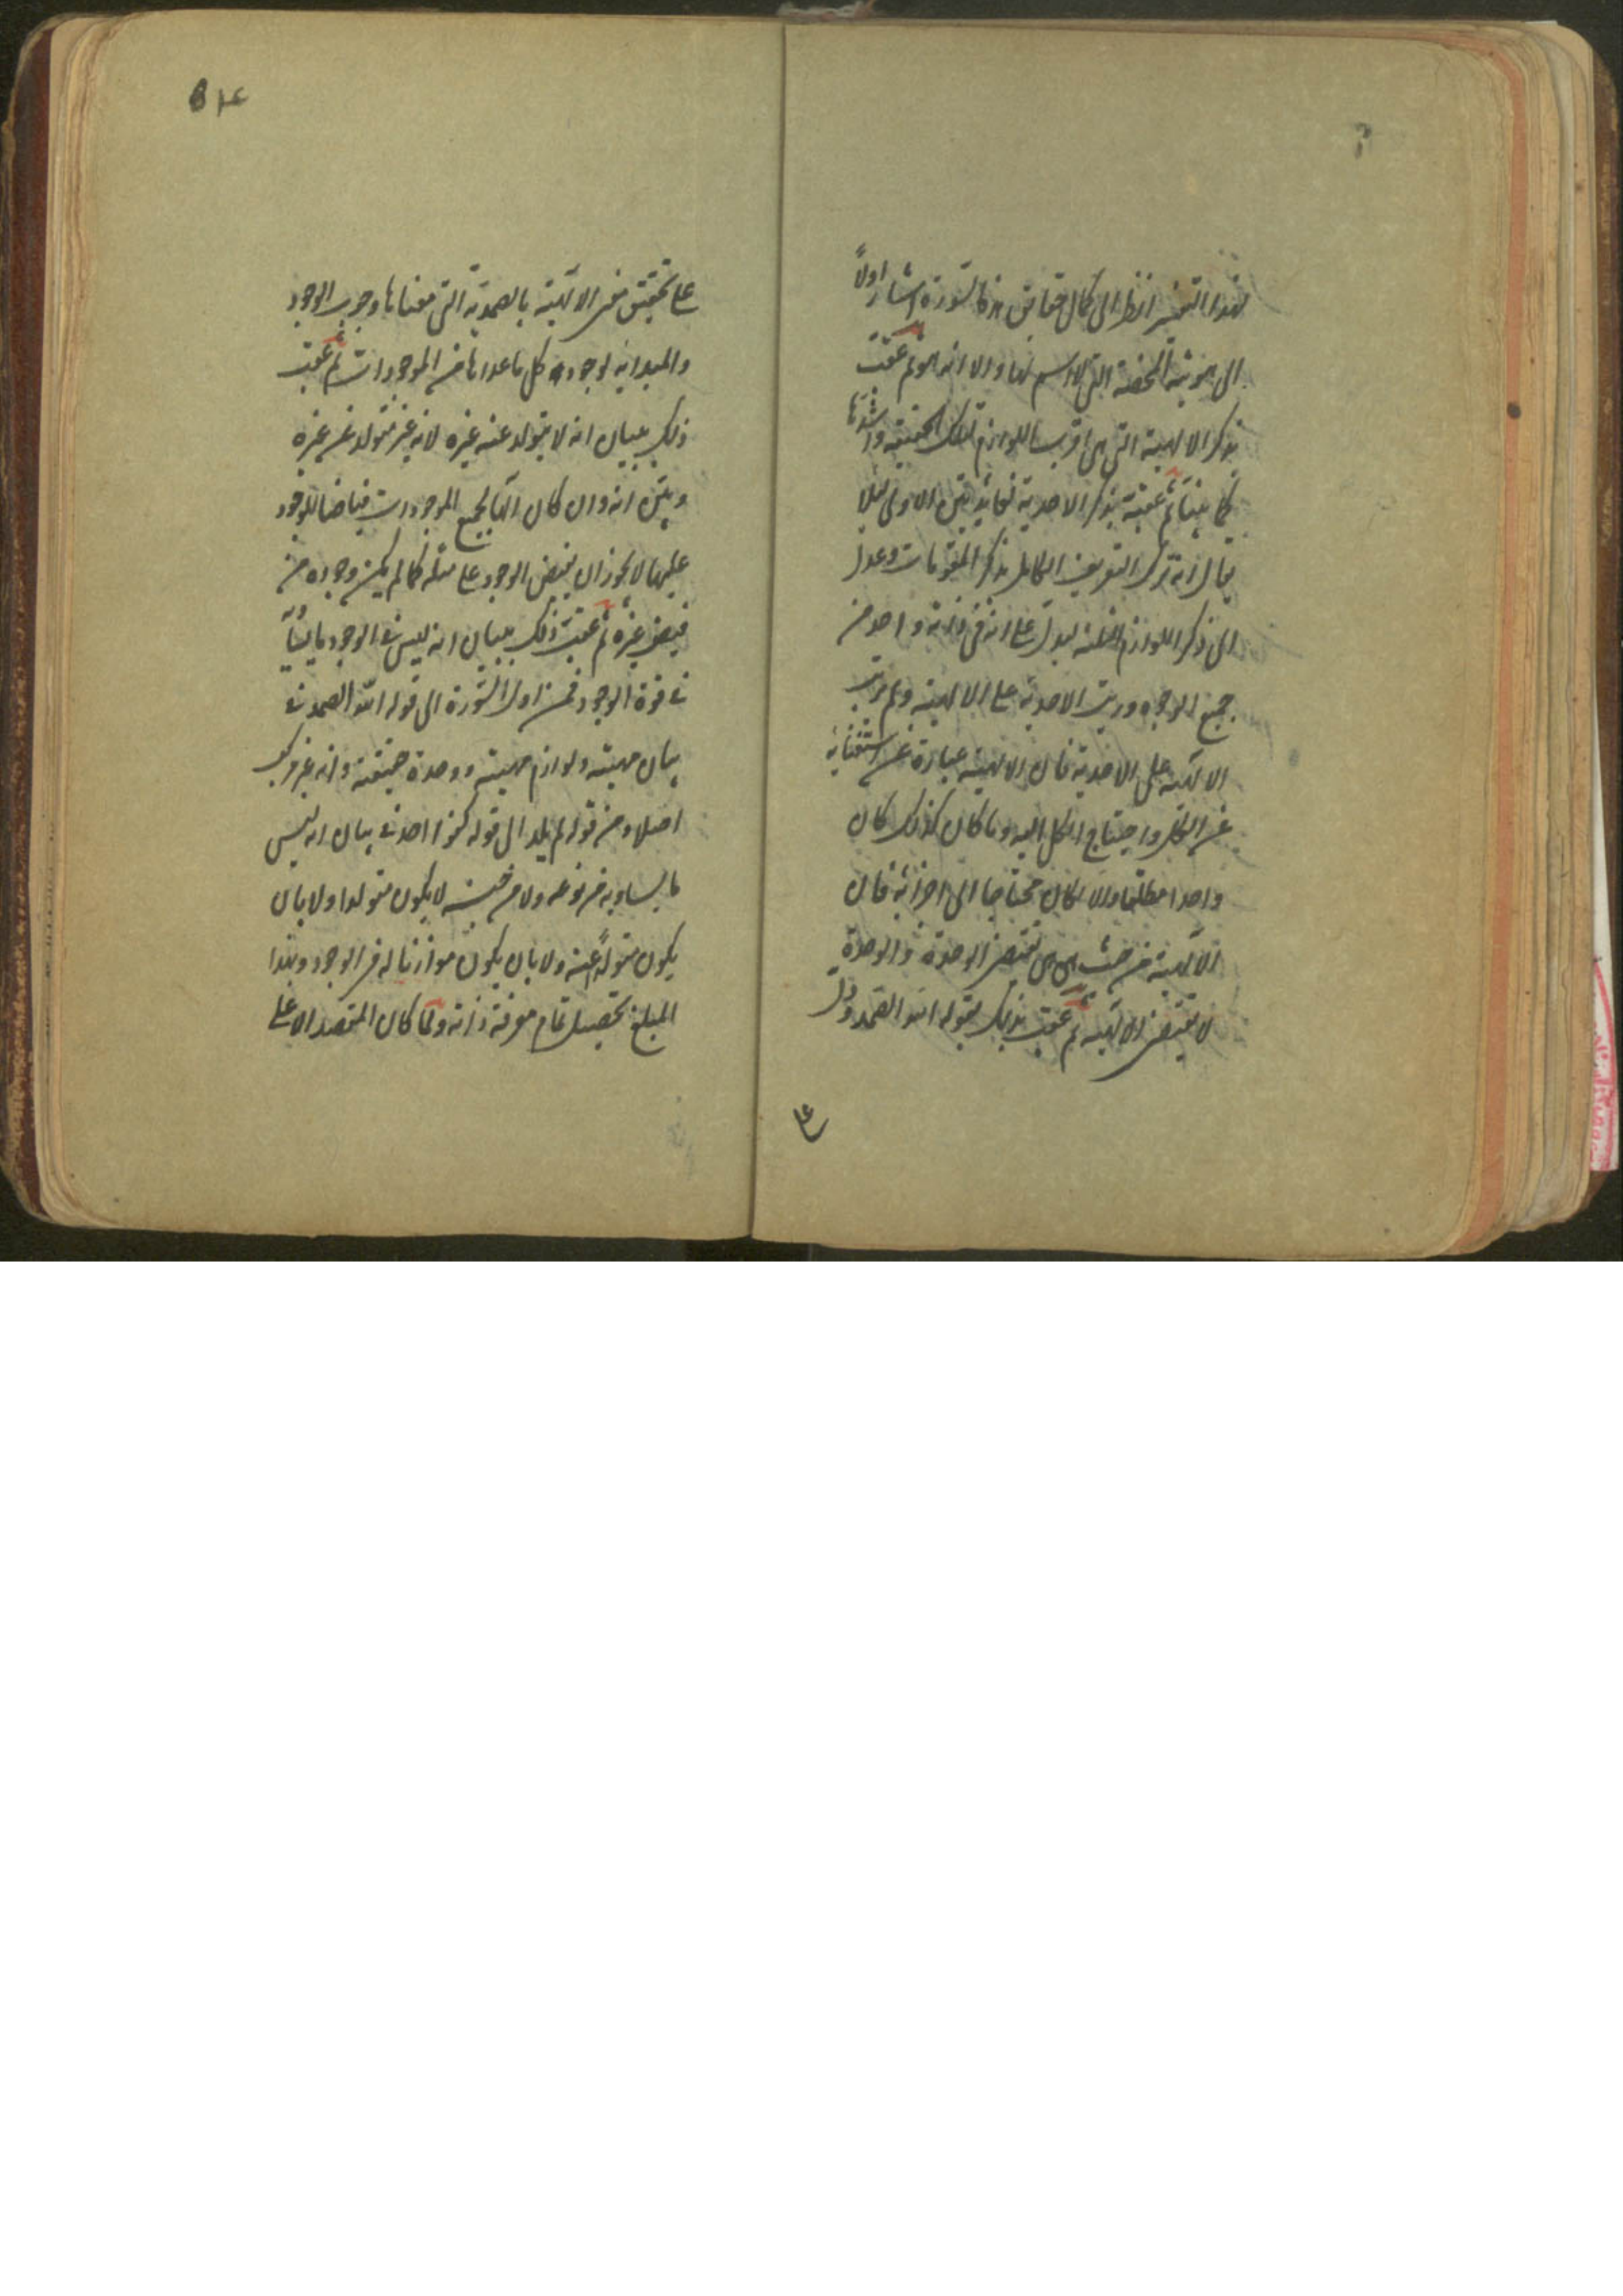 لهذا التفسير انظر الى كمال حقايق هذه السورة اشار اولاً
الى هويته المحضة التى لا اسم لها الا انه هو ثم عقب
بذكر الالهية التى هى اقرب اللوازم لتلك الحقيقة واشدها
كما بينا ثم عقبه بذكر الاحدية لفائدتين الاولى لئلا
يقال انه ترك التعريف الكامل بذكر المقومات وعدل
الى ذكر اللوازم ليدل على انه فى ذاته واحد من
جميع الوجوه ورتب الاحدية على الالهية ولم يرتب
الالهية على الاحدية فان الالهية عبارة عن استغنائه
عن الكل واحتياج الكل اليه وما كان كذلك كان
واحدا مطلقا والا لكان محتاجا الى اجزائه فان
الالهية من حيث هى هى تقتضى الوحدة والوحدة
لا تقتضى الالهية ثم عقب ذلك بقوله الله الصمد ودل
على
٥١٤
على تحقيق معنى الالهية بالصمدية التى معناها وجوب الوجود
والمبدائية لوجود كل ما عداها من الموجودات ثم عقب
ذلك ببيان انه لا يتولد عنه غيره لانه غير متولد عن غيره
وبين انه وان كان الها لجميع الموجودات فياضا للوجود
عليها لا يجوز ان يفيض الوجود على مثله كما لم يكن وجوده من
فيض غيره ثم عقب ذلك ببيان انه ليس فى الوجود ما يساويه
فى قوة الوجود فمن اول السورة الى قوله الله الصمد فى
بيان مهيته ولوازم مهيته ووحدة حقيقته وانه غير مركب
اصلا ومن قوله لم يلد الى قوله كفوا احد فى بيان انه ليس
ما يساويه من نوعه ولا من جنسه لا يكون متولدا ولا بان
يكون متولداً عنه ولا بان يكون موازنا له فى الوجود وبهذا
المبلغ يحصل تمام معرفة ذاته ولما كان المقصد الاعلى